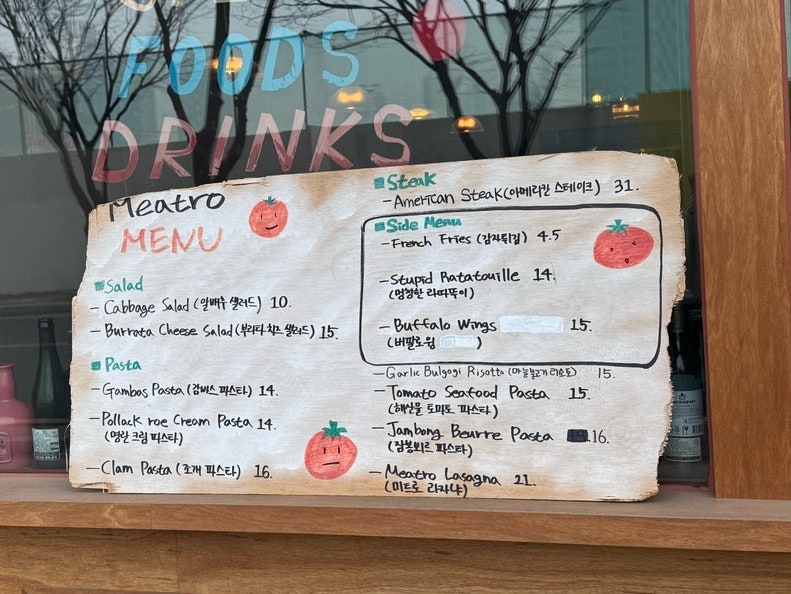 FOODS
DRINKS
Meatro
MENU
Salad
- Cabbage Salad (알배추 샐러드) 10.
- Burrata Cheese Salad (부라타 치즈 샐러드) 15.
Pasta
- Gambas Pasta (감바스 파스타) 14.
- Pollack roe Cream Pasta 14.
(명란 크림 파스타)
- Clam Pasta (조개 파스타) 16.
Steak
- American Steak (아메리칸 스테이크) 31.
Side Menu
- French Fries (감자튀김) 4.5
- Stupid Ratatouille 14.
(멍청한 라따뚜이)
- Buffalo Wings 15.
(버팔로윙 )
- Garlic Bulgogi Risotto (마늘불고기 리소토) 15.
- Tomato Seafood Pasta 15.
(해산물 토마토 파스타)
- Jambong Beurre Pasta 16.
(잠봉뵈르 파스타)
- Meatro Lasagna 21.
(미트로 라자냐)